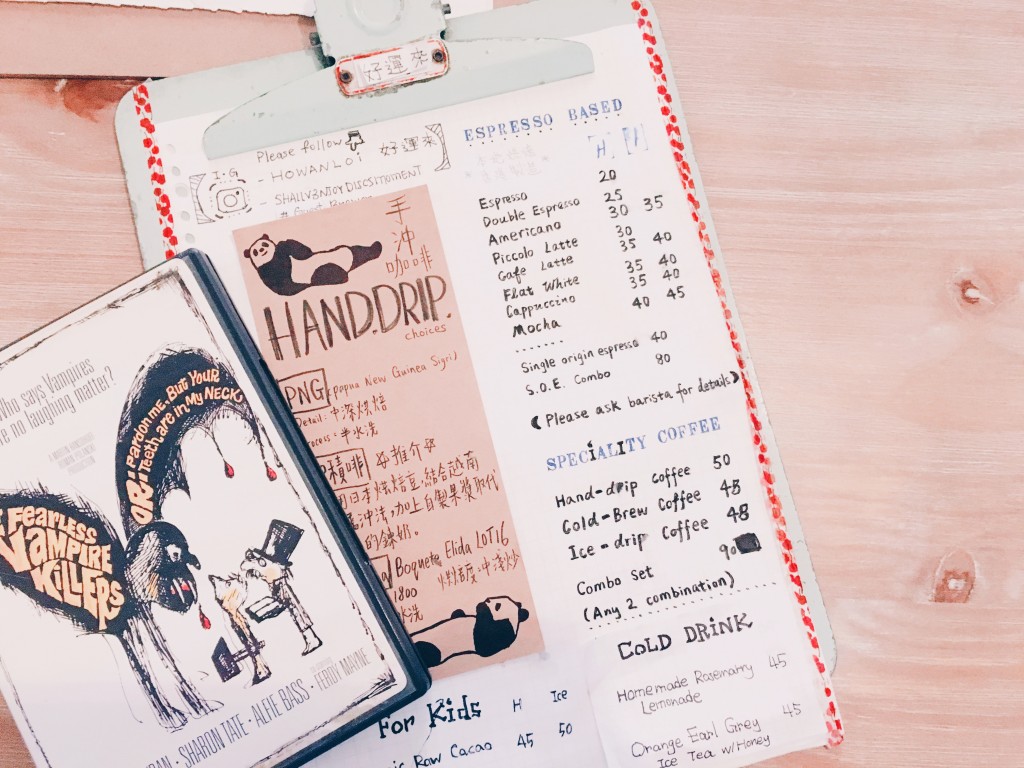 好運來
Please follow
I.G
- HOWANLOI 好運來
- SHALLV3NJOYDISC5ITOMENT
手
沖
咖啡
HAND.DRIP.
choices
PNG (Papua New Guinea Sigri)
Detail: 中深烘焙
Process: 半水洗
積啡 推介
日本烘焙豆,結合越南
沖法,加上自製果醬取代
的鍊奶。
Boquete Elida LOT16
1800
水洗
ESPRESSO BASED
H
Espresso 20
Double Espresso 25
Americano 30 35
Piccolo Latte 30
Cafe Latte 35 40
Flat White 35 40
Cappuccino 35 40
Mocha 40 45
Single origin espresso 40
S.O.E. Combo 80
(Please ask barista for details)
SPECIALITY COFFEE
Hand-drip coffee 50
Cold-Brew Coffee 48
Ice-drip Coffee 48
Combo Set 90
(Any 2 combination)
COLD DRINK
Homemade Rosemary 45
Lemonade
Orange Earl Grey 45
Ice Tea w/Honey
For Kids H Ice
Raw Cacao 45 50
Who says Vampires
are no laughing matter?
OR: PARDON ME, BUT YOUR
Teeth are in My NECK
FEARLESS
VAMPIRE
KILLERS
SHARON TATE · ALFIE BASS · FERDY MAYNE